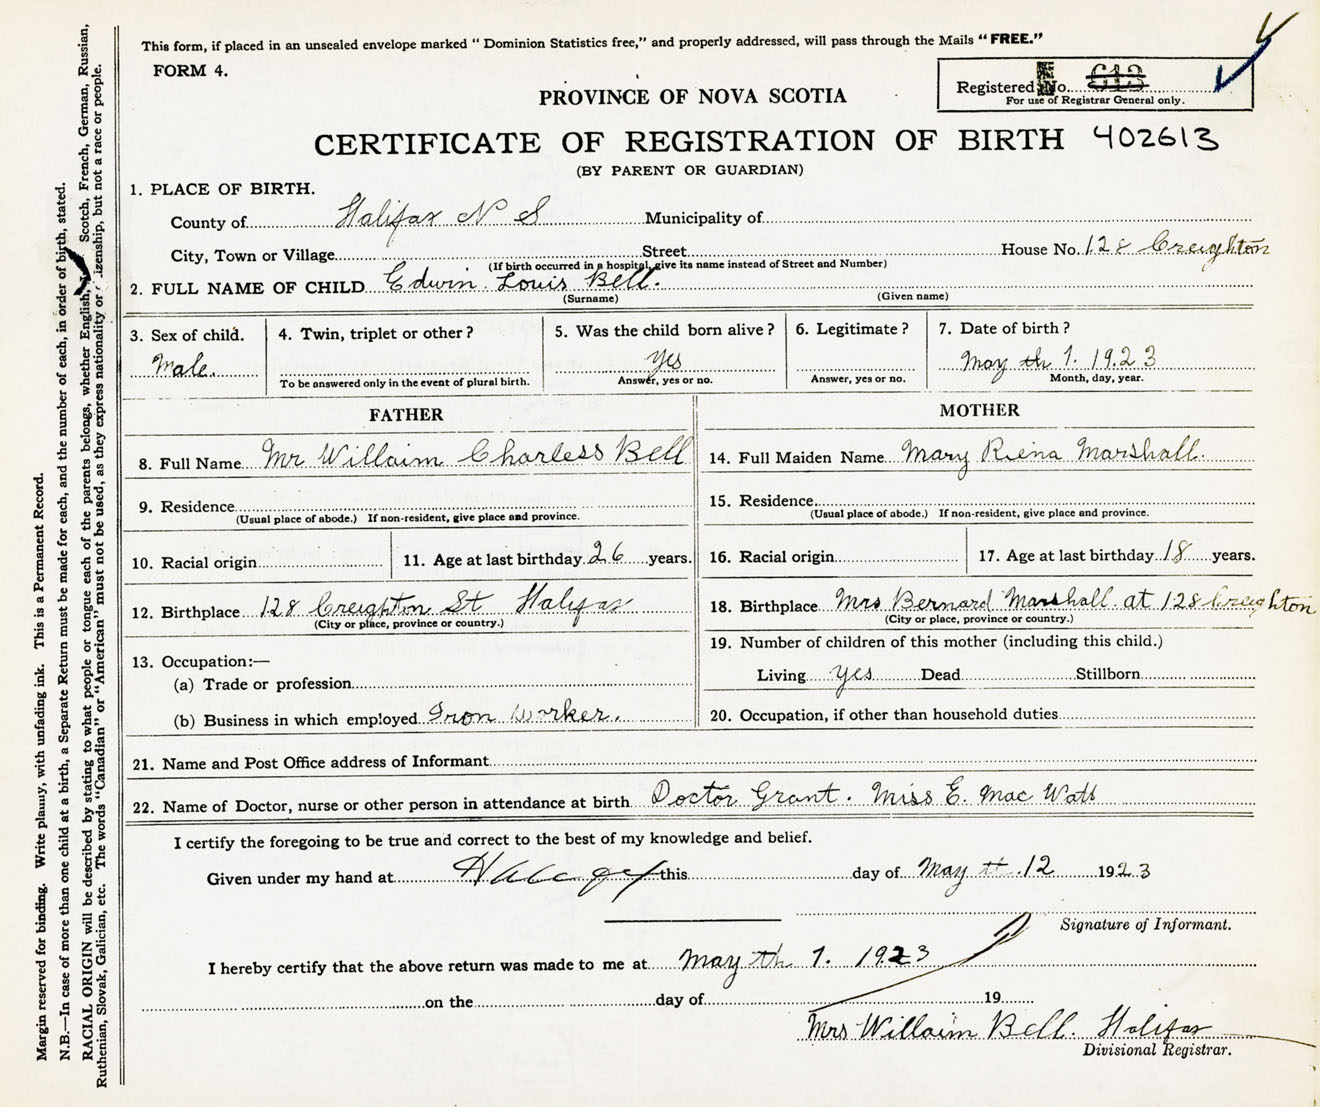 This form, if placed in an unsealed envelope marked “ Dominion Statistics free,” and properly addressed, will pass through the Mails “ FREE.”
FORM 4.
Registered No. 613
For use of Registrar General only.
PROVINCE OF NOVA SCOTIA
CERTIFICATE OF REGISTRATION OF BIRTH 402613
(BY PARENT OR GUARDIAN)
1. PLACE OF BIRTH.
County of Halifax N S Municipality of
City, Town or Village Street House No. 128 Creighton
(If birth occurred in a hospital, give its name instead of Street and Number)
2. FULL NAME OF CHILD Edwin. Louis Bell.
(Surname) (Given name)
3. Sex of child. 4. Twin, triplet or other ? 5. Was the child born alive ? 6. Legitimate ? 7. Date of birth ?
Male. yes May th 1. 1923
To be answered only in the event of plural birth. Answer, yes or no. Answer, yes or no. Month, day, year.
FATHER MOTHER
8. Full Name Mr Willaim Charless Bell 14. Full Maiden Name Mary Riena Marshall.
9. Residence 15. Residence
(Usual place of abode.) If non-resident, give place and province. (Usual place of abode.) If non-resident, give place and province.
10. Racial origin 11. Age at last birthday 26 years. 16. Racial origin 17. Age at last birthday 18 years.
12. Birthplace 128 Creighton St Halifax 18. Birthplace Mrs Bernard Marshall. at 128 Creighton
(City or place, province or country.) (City or place, province or country.)
13. Occupation:— 19. Number of children of this mother (including this child.)
(a) Trade or profession Living yes Dead Stillborn
(b) Business in which employed Iron worker. 20. Occupation, if other than household duties
21. Name and Post Office address of Informant
22. Name of Doctor, nurse or other person in attendance at birth Doctor Grant. Miss E. Mac Watt
I certify the foregoing to be true and correct to the best of my knowledge and belief.
Given under my hand at this day of May th 12 1923
Signature of Informant.
I hereby certify that the above return was made to me at May th 1. 1923
on the day of 19
Mrs Willaim Bell. Halifax
Divisional Registrar.
Margin reserved for binding. Write plainly, with unfading ink. This is a Permanent Record.
N.B.—In case of more than one child at a birth, a Separate Return must be made for each, and the number of each, in order of birth, stated.
RACIAL ORIGIN will be described by stating to what people or tongue each of the parents belongs, whether English, Scotch, French, German, Russian,
Ruthenian, Slovak, Galician, etc. The words “Canadian” or “American” must not be used, as they express nationality or citizenship, but not a race or people.